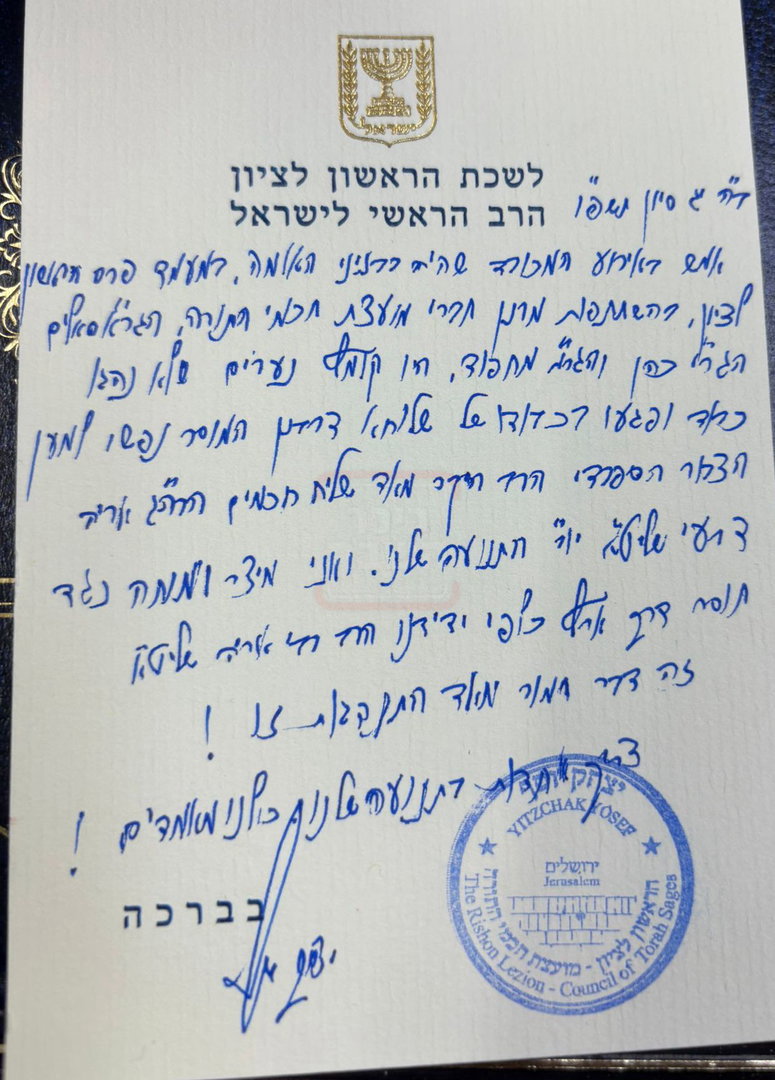 ישראל
לשכת הראשון לציון
הרב הראשי לישראל
בה ג סיון תשפ"ו
אמש באירוע המכובד שהיה בבניני האומה, במעמד פרס הראשון
לציון, בהשתתפות מרנן חברי מועצת חכמי התורה,
הגר"י כהן והגר"י מחפוד, היו קומץ נערים שלא נהגו
כבוד ופגעו בכבודו של שלוחא דרבנן המוסר נפשו למען
הצבור הספרדי הרב היקר מאד שליח חכמים הרה"ג אריה
דרעי שליט"א יו"ר התנועה שלנו. ואני מיצר ומוחה נגד
חוסר דרך ארץ כלפי ידידנו הרב רבי אריה שליט"א
זה דבר חמור מאד התנהגות זו !
צריך אחדות בתנועה שלנו כולנו מאוחדים !
בברכה
יצחק יוסף
יצחק יוסף
YITZCHAK YOSEF
ירושלים
Jerusalem
הראשון לציון - מועצת חכמי התורה
The Rishon Lezion - Council of Torah Sages